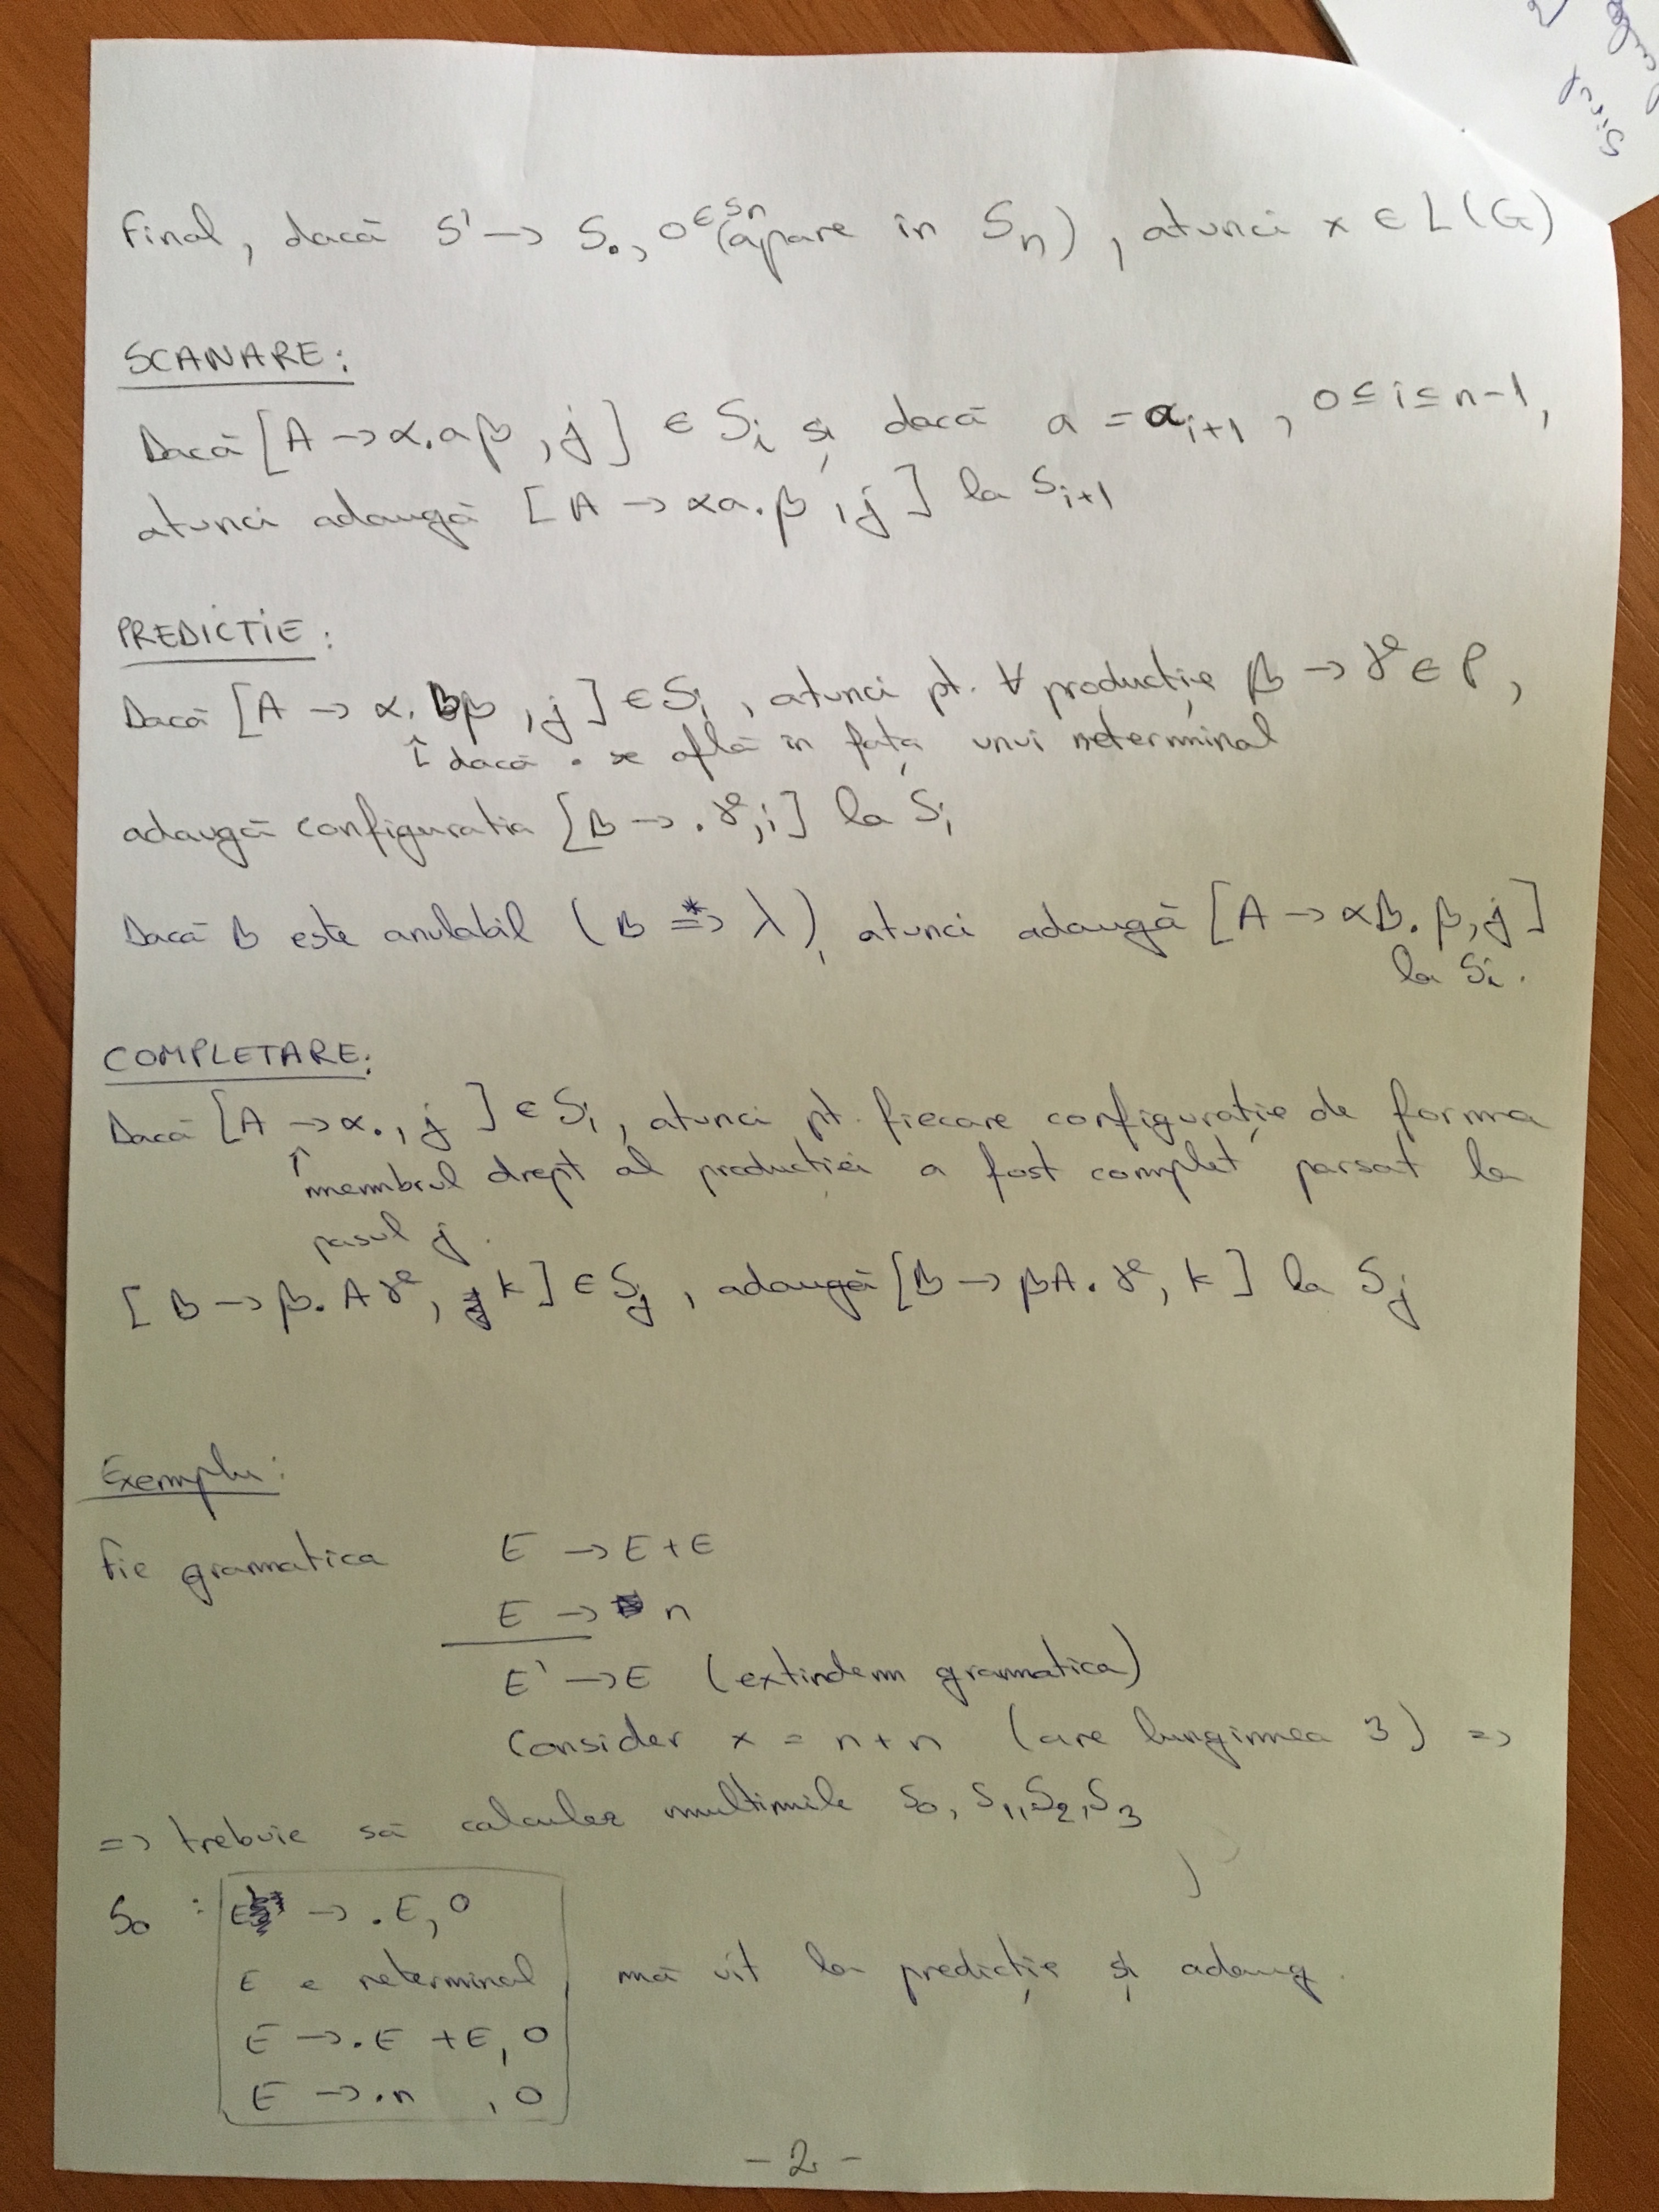 Final, dacă S' → S., 0 ∈ Sn (apare în Sn), atunci x ∈ L(G)
SCANARE:
Dacă [A → α.aβ, j] ∈ Si și dacă a = ai+1, 0 ≤ i ≤ n-1,
atunci adaugă [A → αa.β, j] la Si+1
PREDICTIE:
Dacă [A → α.Bβ, j] ∈ Si, atunci pt. ∀ producție B → γ ∈ P,
↑ dacă . se află în fața unui neterminal
adaugă configuratia [B → .γ, i] la Si
Dacă B este anulabil (B =*> λ), atunci adaugă [A → αB.β, j]
la Si.
COMPLETARE:
Dacă [A → α., j] ∈ Si, atunci pt. fiecare configurație de forma
↑ membrul drept al producției a fost complet parsat la
pasul j.
[B → β.Aγ, k] ∈ Sj, adaugă [B → βA.γ, k] la Sj
Exemplu:
Fie gramatica E → E+E
E → n
E' → E (extindem gramatica)
Consider x = n+n (are lungimea 3) =>
=> trebuie să calculez multimile S0, S1, S2, S3
S0 : E' → .E, 0
E e neterminal, mă uit la predicție și adaug.
E → .E +E, 0
E → .n , 0
- 2 -